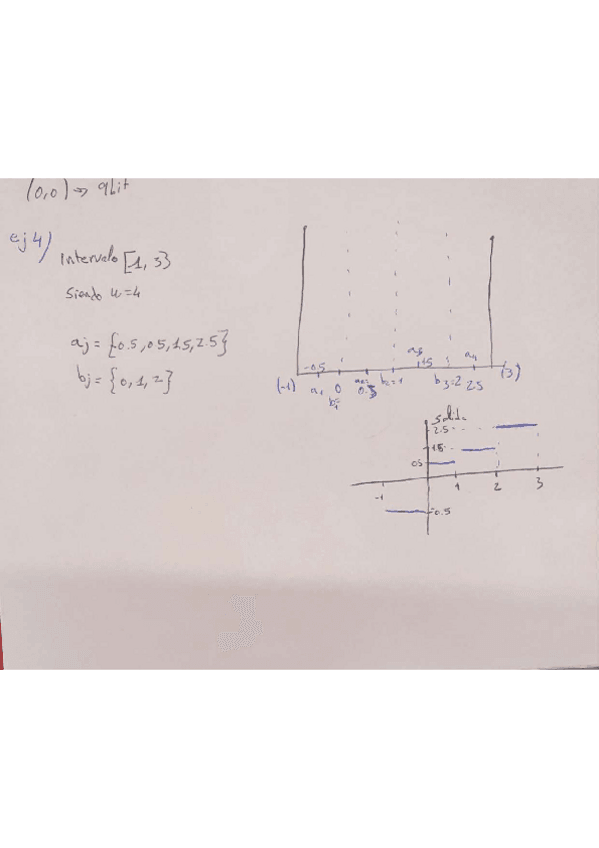 (0,0) → 9bit
ej 4)
Intervalo [-1, 3}
Siendo u=4
aj = {-0.5, 0.5, 1.5, 2.5}
bj = {0, 1, 2}
-0.5 a3 1.5 a4
(-1) a1 0 0.5 b2=1 b3=2 2.5 (3)
b1
Salida
2.5
1.5
0.5
-1 1 2 3
-0.5